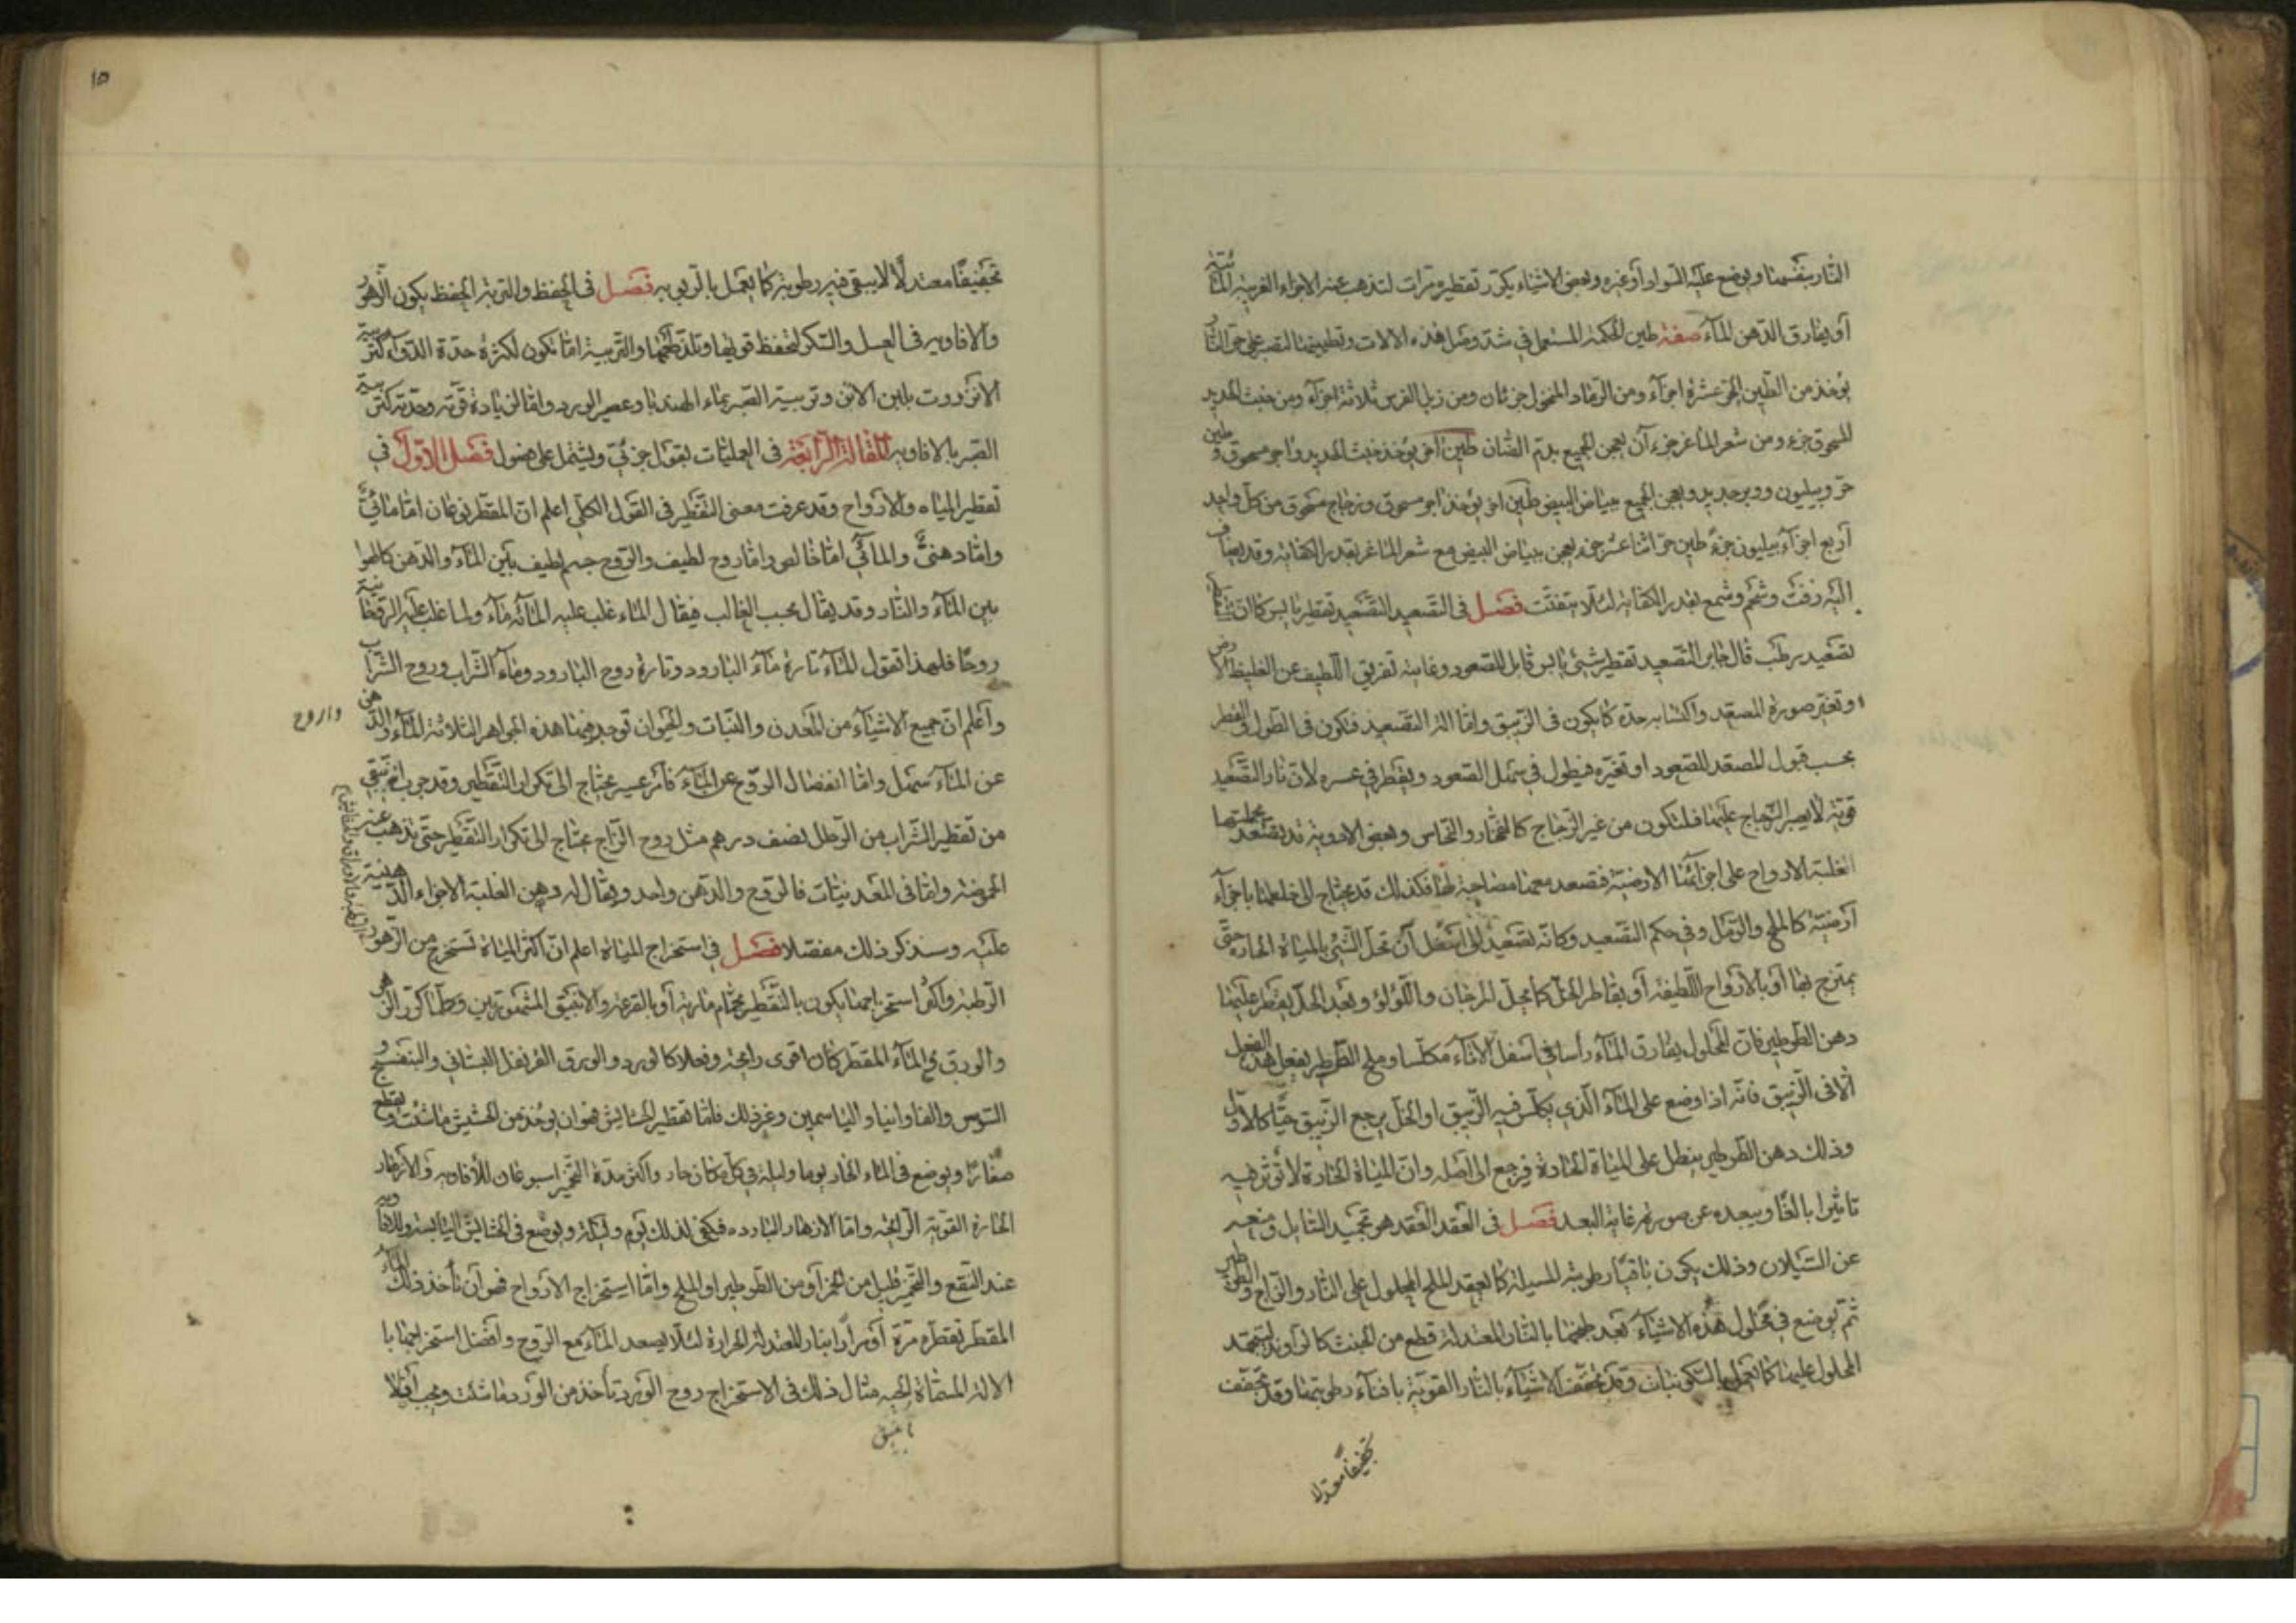 النار بنفسها ويوضع عليه السواد أو غيره وبعض الاشياء يكرر تقطيره مرات لتذهب عنه الاجزاء الغريبة المائية
أو يفارق الدهن الماء صفة طين الحكمة المستعمل في شد وصل هذه الالات وتطيينها لتصبر على حر النار
يؤخذ من الطين الحر عشرة اجزاء ومن الرماد المنخول جزءان ومن زبل الفرس ثلاثة اجزاء ومن خبث الحديد
المسحوق جزء ومن شعر الماعز جزء آن يعجن الجميع بدم الضان طين آخر يؤخذ خبث الحديد واجر مسحوق وطين
حر وبيليون ووبر جديد ويعجن الجميع ببياض البيض طين اخر يؤخذ اجر مسحوق وزجاج مسحوق من كل واحد
أربع اجزاء بيليون جزء طين حر اثنا عشر جزء يعجن ببياض البيض مع شعر الماعز بقدر الكفاية وقد يضاف
اليه زفت وشحم وشمع بقدر الكفاية لئلا يتفتت فصل في التصعيد التصعيد تقطير يابس كما ان التقطير
تصعيد رطب قال جابر التصعيد تقطير شيئ يابس قابل للصعود وغايته تفريق اللطيف عن الغليظ الارضى
او تغير صورة المصعد واكتسابه حدة كما يكون في الزيبق واما الة التصعيد فتكون في الطول والقصر
بحسب قبول المصعد للصعود او تخيره فيطول في سهل الصعود ويقصر في عسره لان نار التصعيد
قوية لا يصبر الزجاج عليها فلتكون من غير الزجاج كالفخار والنحاس وبعض الادوية قد يصعد بجملتها
لغلبة الارواح على اجزائها الارضية فتصعد معها مصاحبة لها فكذلك قد يحتاج الى خلطها باجزاء
أرضية كالملح والرمل وفي حكم التصعيد وكانه تصعيد الى اسفل أن تحل الشئ بالمياه الحارة حتى
يمتزج بها أو بالارواح اللطيفة أو بقاطر الخل كما يحل المرجان واللؤلؤ وبعد الحل يقطر عليها
دهن الطرطير فان المحلول يفارق الماء راسبا في اسفل الاناء مكلسا وملح الطرطير يفعل هذا الفعل
الا في الزيبق فانه اذا وضع على الماء الذي يكلس فيه الزيبق او الخل يرجع الزيبق حيا كالاول
وذلك دهن الطرطير يبطل على المياه الحادة فيرجع الى اصله وان المياه الحادة لا تؤثر فيه
تاثيرا بالغا ويبعده عن صورته غاية البعد فصل في العقد العقد هو تجميد السائل ومنعه
عن السيلان وذلك يكون بافناء رطوبته المسيلة كما يعقد الملح المحلول على النار والزاج والطرطير
ثم يوضع في محلول هذه الاشياء بعد طبخها بالنار المعتدلة قطع من الخشب كالاوتاد ليجمد
المحلول عليها كما يعمل بالسكر نبات وقد تجفف الاشياء بالنار القوية بافناء رطوبتها وقد تجفف
تجفيفا معتدلا
تجفيفًا معتدلًا لا يبقى فيه رطوبة كما يعمل بالربوب فصل في الحفظ والتربية الحفظ يكون الزهور
والافاويه في العسل والسكر لتحفظ قويها وتلذ طعمها والتربية اما تكون لكسرة حدة الدواء كتربية
الانزروت بلبن الاتن وتربية الصبر بماء الهندبا وعصير الورد واما لزيادة قوته وحدته كتربية
الصبر بالافاويه المقالة الرابعة في العمليات بقول جزئي ويشتمل على فصول فصل الاول في
تقطير المياه والارواح وقد عرفت معنى التقطير في القول الكلي اعلم ان المقطر نوعان اما مائي
واما دهني والمائي اما خالص واما روح لطيف والروح جسم لطيف بين الماء والدهن كالهوا
بين الماء والنار وقد يقال بحسب الغالب فيقال لما غلب عليه المائية ماء ولما غلب عليه الروحانية
روحا فلهذا تقول للماء تارة ماء البارود وتارة روح البارود وماء الشراب وروح الشراب
وأعلم ان جميع الاشياء من المعدن والنبات والحيوان توجد فيها هذه الجواهر الثلاثة الماء والدهن
واروح
عن الماء سهل واما انفصال الروح عن الماء فامر عسير يحتاج الى تكرار التقطير وقد جرب انه يبقى
من تقطير الشراب من الرطل نصف درهم مثل روح الزاج يحتاج الى تكرار التقطير حتى تذهب عنه
الحموضة واما في المعدنيات فالروح والدهن واحد ويقال له دهن الغلبة الاجزاء الدهنية
عليه وسنذكر ذلك مفصلا فصل في استخراج المياه اعلم ان اكثر المياه تستخرج من الزهور
الرطبة والاوراق والحشايش
الرطبة واكثر استخراجها يكون بالتقطير بحمام مارية أو بالقرعة والانبيق المشهورين وكلما كرر الزهر
والورق في الماء المقطر كان اقوى رايحة وفعلا كالورد والورق القرنفل البستاني والبنفسج و
السوس والفاوانيا والياسمين وغير ذلك فاما تقطير الحشايش فهو ان يؤخذ من الحشيش ما شئت ويقطع
صغارًا ويوضع في الماء الحار يوما وليلة في كل مكان حار واكثر مدة التخمير اسبوعان للافاويه والازهار
الحارة القوية الرايحة واما الازهار الباردة فيكفى لذلك يوم وليلة ويوضع في الحشايش اليابسة والافاويه
عند النقع والتخمير قليل من الخمر أو من الطرطير او الملح واما استخراج الارواح فهو أن تأخذ ذلك الماء
المقطر تقطره مرة أو مرارا بنار المعتدلة الحرارة لئلا يصعد الماء مع الروح وافضل استخراجها با
الالة المسماة الحية مثال ذلك في الاستخراج روح الورد تأخذ من الورد ما شئت ويجب أولا